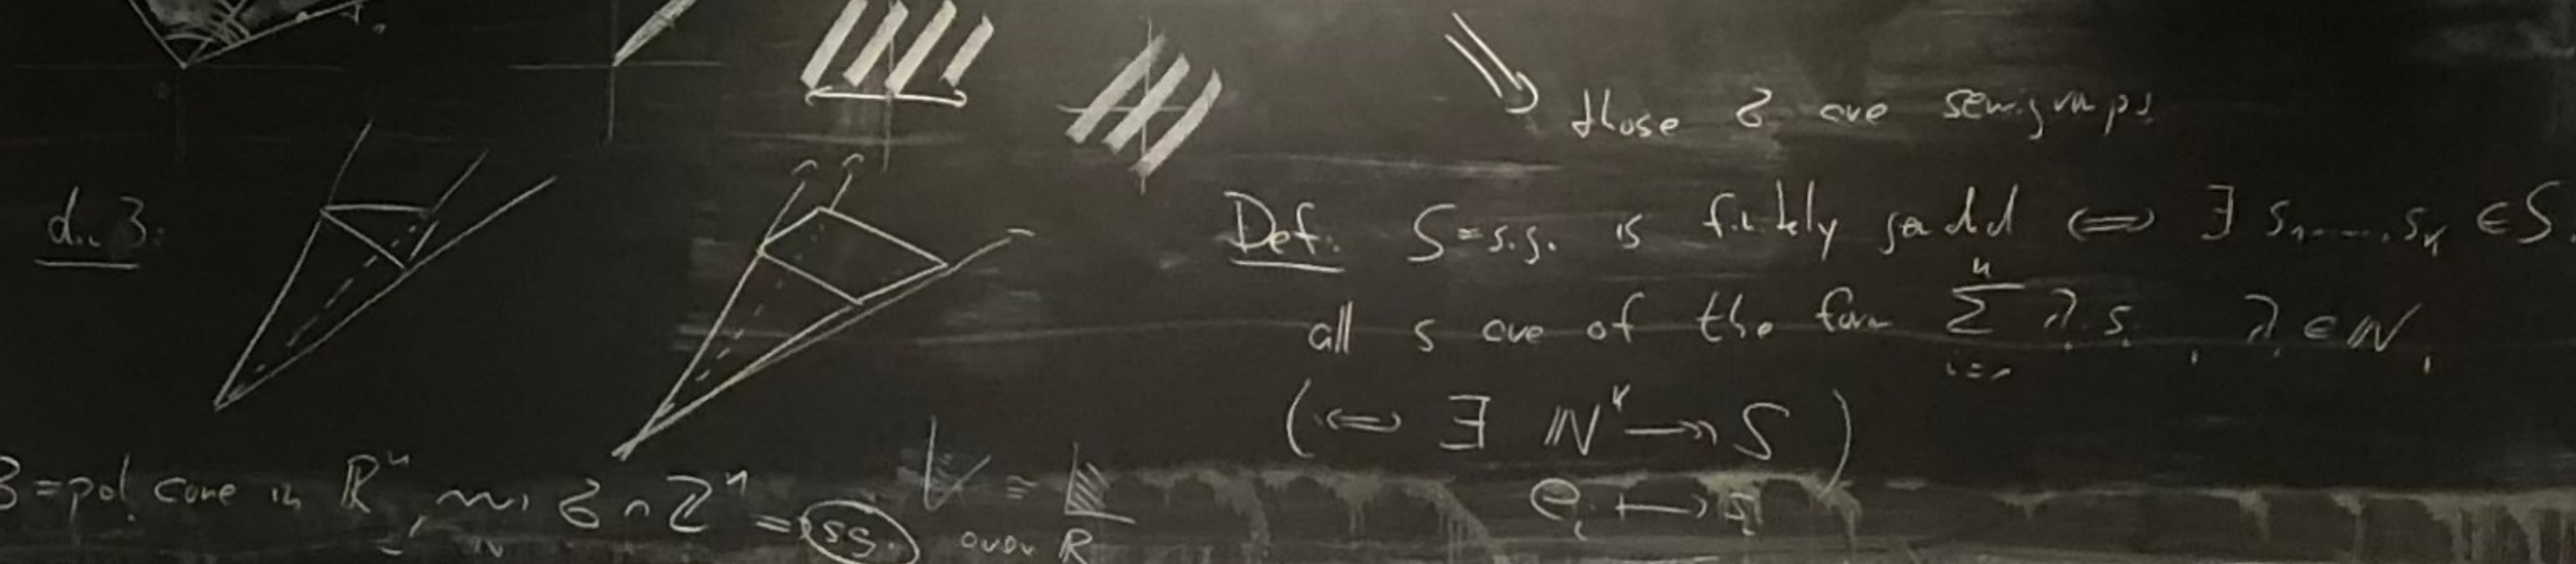 those σ are semigroups
dim 3:
Def. S=s.g. is finitely gen'dd ⟺ ∃ s₁,...,sₖ ∈ S.
all s are of the form Σᵢ₌₁ⁿ λᵢ sᵢ , λᵢ ∈ ℕ,
(⟺ ∃ ℕᵏ ↠ S)
eᵢ ↦ sᵢ
σ = pol. cone in ℝⁿ, ⇝ σ ∩ ℤⁿ = s.g.
≅
over ℝ